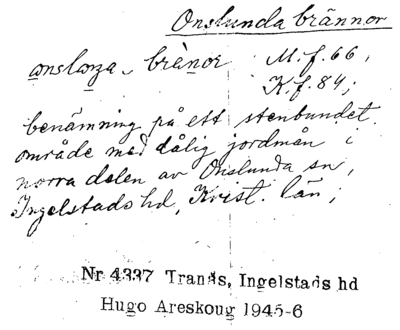 Onslunda brännor
onslonza - brènor M.f. 66,
K.f. 84;
benämning på ett stenbundet
område med dålig jordmån i
norra delen av Onslunda sn,
Ingelstads hd, Krist. län;
Nr 4337 Tranås, Ingelstads hd
Hugo Areskoug 1945-6